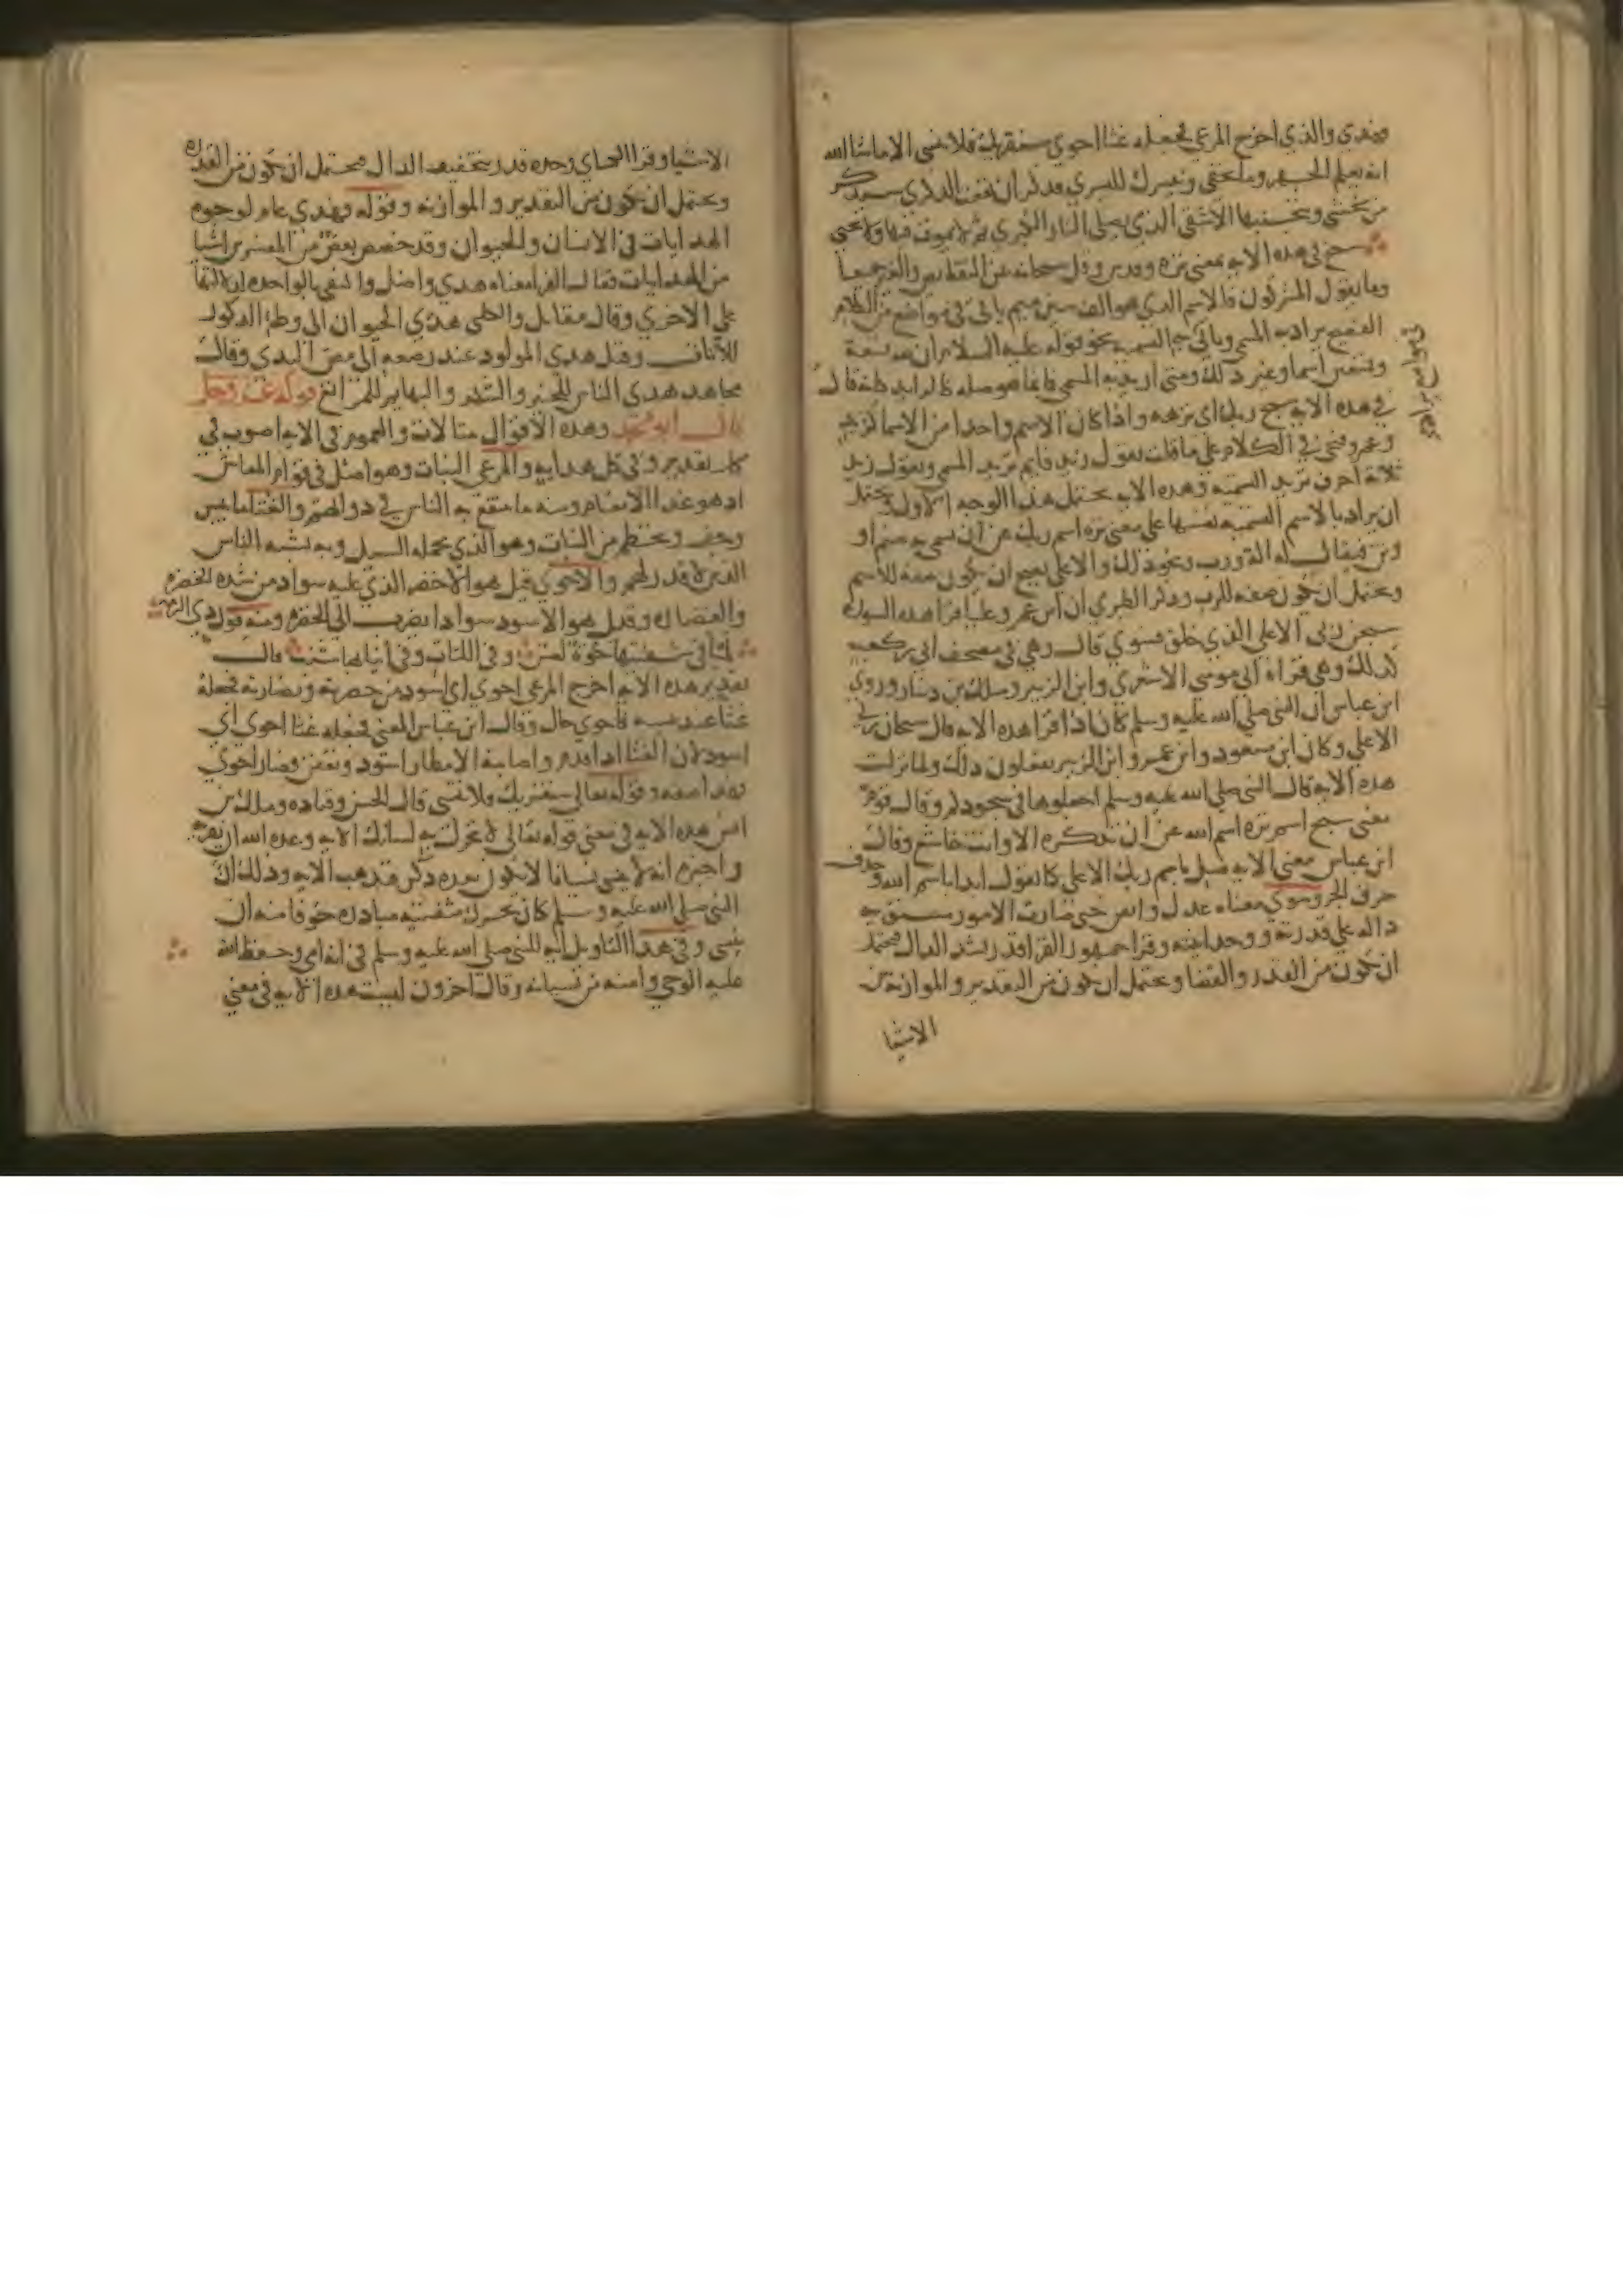 فهدى والذي اخرج المرعى فجعله غثا احوى سنقريك فلا تنسى الا ما شا الله
انه يعلم الجهر وما يخفى ونيسرك لليسرى فذكر ان نفعت الذكرى سيذكر
من يخشى ويتجنبها الاشقى الذي يصلى النار الكبرى ثم لا يموت فيها ولا يحيى
سبح في هذه الايه بمعنى نزه وقدس وقل سبحانه عن النقايص والغير جميعا
وما يقول المشركون فالاسم الذي هو الف سين ميم ياتي في مواضع من الكلام
الفصيح يراد به المسمى وياتي يراد به التسميه نحو قوله عليه السلام ان لله تسعة
وتسعين اسما وغير ذلك ومتى اريد به المسمى فانما هو صله كالزايد كانه قال
في هذه الايه سبح ربك اي نزهه واذا كان الاسم واحدا من الاسما كزيد
وعمرو فيجي في الكلام على ما قلت تقول زيد قايم تريد المسمى وتقول زيد
ثلاثة احرف تريد التسميه وهذه الايه تحتمل هذا الوجه الاول وتحتمل
ان يراد بالاسم التسميه نفسها على معنى نزه اسم ربك عن ان يسمى به صنم او
وثن فيقال له اله ورب ونحو ذلك والاعلى يصح ان يكون صفه للاسم
ويحتمل ان يكون صفه للرب وذكر الطبري ان ابن عمر وعليا قرا هذه السوره
سبحن ربي الاعلى الذي خلق فسوى قال وهي في مصحف ابي بن كعب
كذلك وهي قراه ابي موسى الاشعري وابن الزبير ومالك بن دينار وروى
ابن عباس ان النبي صلى الله عليه وسلم كان اذا قرا هذه الايه قال سبحان ربي
الاعلى وكان ابن مسعود وابن عمر وابن الزبير يفعلون ذلك ولما نزلت
هذه الايه قال النبي صلى الله عليه وسلم اجعلوها في سجودكم وقال قوم
معنى سبح اسم نزه اسم الله عن ان تذكره الا وانت خاشع وقال
ابن عباس معنى الايه صل باسم ربك الاعلى كما تقول ابدا باسم الله وحذف
حرف الجر وسوى معناه عدل واتقن حتى صارت الامور مستويه
داله على قدرته ووحدانيته وقرا جمهور القرا قدر بشد الدال فيحتمل
ان يكون من القدر والقضا ويحتمل ان يكون من التقدير والموازنه بين
الاشيا
الاشيا وقرا الكساي وحده قدر بتخفيف الدال فيحتمل ان يكون من القدره
ويحتمل ان يكون من التقدير والموازنه وقوله فهدى عام لوجوه
الهدايات في الانسان والحيوان وقد خصص بعض من المفسرين اشيا
من الهدايات فقال الفرا معناه هدى واضل واكتفى بالواحده لدلالتها
على الاخرى وقال مقاتل والكلبي هدى الحيوان الى وطء الذكور
للاناث وقيل هدى المولود عند وضعه الى مص الثدي وقال
مجاهد هدى الناس للخير والشر والبهايم للمراتع قوله عز وجل
قال ابو محمد وهذه الاقوال مثالات والعموم في الايه اصوب في
كل تقدير وفي كل هدايه والمرعى النبات وهو اصل في قوام المعاش
اذ هو غذا الانعام ومنه ما ينتفع به الناس في ذواتهم والغثا ما يبس
وجف وتحطم من النبات وهو الذي يحمله السيل وبه يشبه الناس
الذين لا قدر لهم والاحوى قيل هو الاخضر الذي عليه سواد من شده الخضره
والغضاره وقيل هو الاسود سوادا يضرب الى الخضره ومنه قول ذي الرمه
لميا في شفتيها حوة لعس وفي اللثات وفي انيابها شنب قال
تقدير هذه الايه اخرج المرعى احوى اي اسود من خضرته ونضارته فجعله
غثا عند يبسه فاحوى حال وقال ابن عباس المعنى فجعله غثا احوى اي
اسود لان الغثا اذا قدم واصابته الامطار اسود وتعفن فصار احوى
فهذا صفه وقوله تعالى سنقريك فلا تنسى قال الحسن وقتاده ومالك بن
انس هذه الايه في معنى قوله تعالى لا تحرك به لسانك الايه وعده الله ان يقريه
واخبره انه لا ينسى نسيانا لا يكون بعده ذكر فتذهب الايه وذلك ان
النبي صلى الله عليه وسلم كان يحرك شفتيه مبادره خوفا منه ان
ينسى وفي هذا التاويل ايه للنبي صلى الله عليه وسلم في انه امي وحفظ الله
عليه الوحي وامنه من نسيانه وقال اخرون ليست هذه الايه في معنى